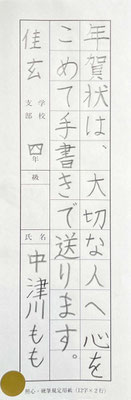 年賀状は、大切な人へ心を
こめて手書きで送ります。
佳玄
支部
学校
四年
級
氏名
中津川もも
初心・硬筆規定用紙（12字×2行）